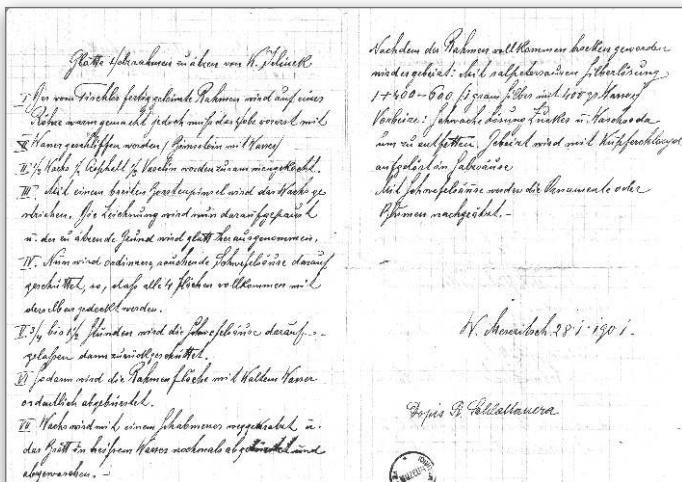 Glatte Holzrahmen zu ätzen von K. Jelinek
I Der vom Tischler fertig geleimte Rahmen wird auf einer
Röhre warm gemacht jedoch muß das Holz vorerst mit
Wasser geschliffen werden / Bimstein mit Wasser /
II. 1/2 Wachs 1/2 Asphalt 1/2 Vaselin werden zusammengekocht.
III. Mit einem breiten Borstenpinsel wird das Wachs ge
strichen. Die Zeichnung wird nun darauf gepaust
u. der zu ätzende Grund wird glatt herausgenommen.
IV. Nun wird ordinäre, rauchende Schwefelsäure darauf
geschüttet, so, daß alle Flächen vollkommen mit
derselben gedeckt werden.
V. 3/4 bis Stunden wird die Schwefelsäure darauf
gelassen dann zurückgeschüttet.
VI Sodann wird die Rahmenfläche mit kaltem Wasser
ordentlich abgebürstet.
VII Wachs wird mit einem Schabmesser weggeschabt u.
das in heißem Wasser nochmals abgebürstet und
abgewaschen. –
Nachdem der Rahmen vollkommen trocken geworden
wird es gebeizt: mit salpetersauren Silberlösung
1 + 400–600 / 1 gram Silber mit 400 gr Wasser /
Vorbeize: schwache Lösung u. Waschsoda
um zu entfetten. Gebeizt wird mit
aufgelöst in Salzsäure
Mit Schwefelsäure werden die Ornamente oder
Blumen nachgeätzt. –
W. Meseritsch 28 · 1 · 1901 ·
Dopis R. Schlattauera